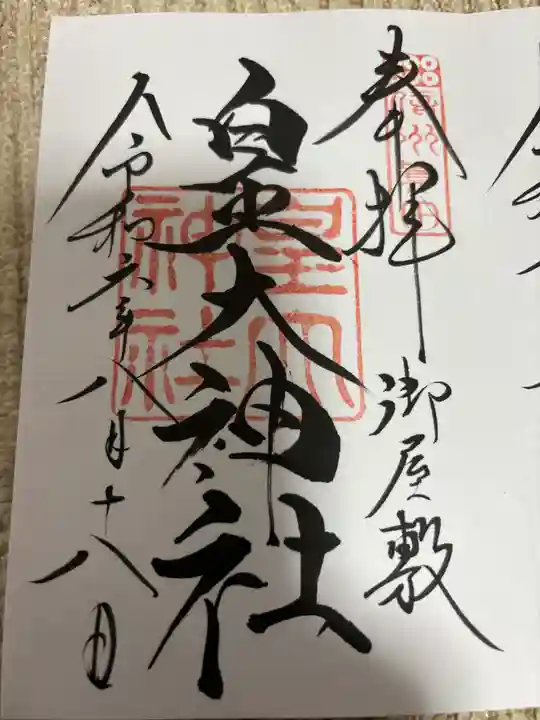 奉拝
御屋敷
皇大神社
皇大
神社
令和六年八月十八日